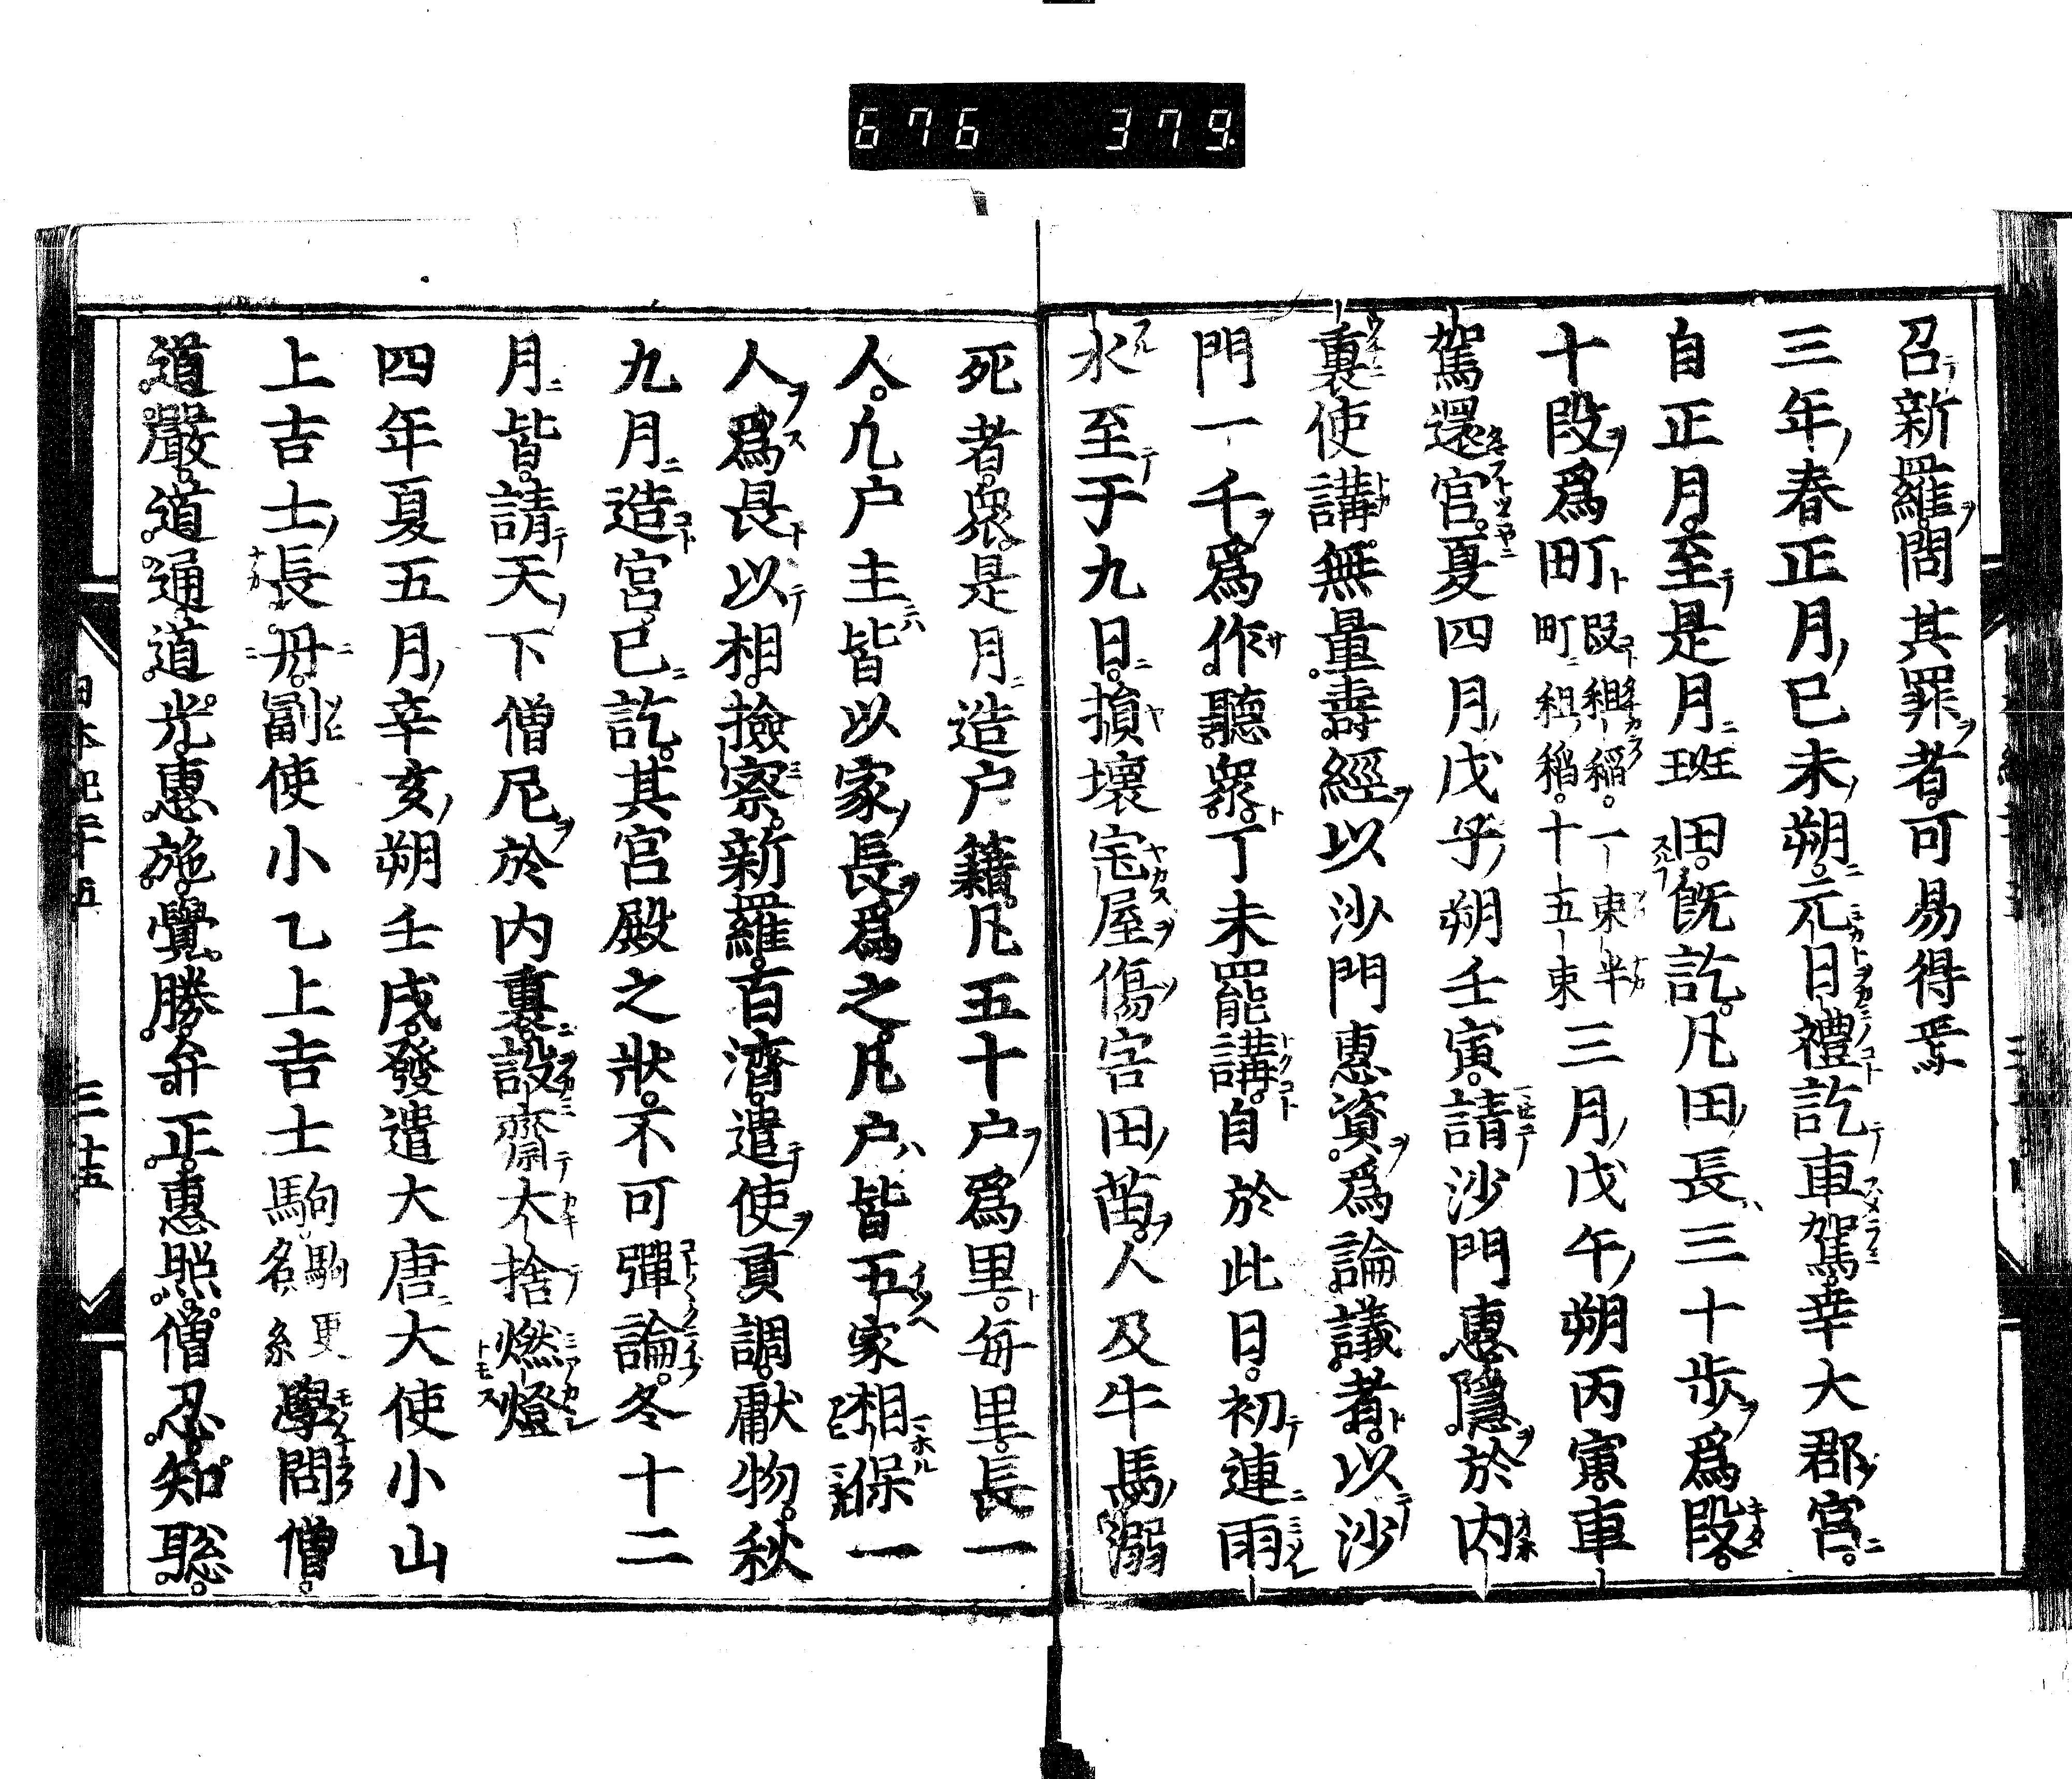 676 379
召新羅問其罪者可易得焉
三年春正月己未朔元日禮訖車駕幸大郡宮
自正月至是月班田既訖凡田長三十歩爲段
十段爲町段租稲一束半町租稲十五束三月戊午朔丙寅車
駕還宮夏四月戊子朔壬寅請沙門惠隱於内
裏使講無量壽經以沙門惠資爲論議者以沙
門一千爲作聽衆丁未罷講自於此日初連雨
水至于九日損壞宅屋傷害田苗人及牛馬溺
死者衆是月造户籍凡五十户爲里毎里長一
人凢户主皆以家長爲之凡户皆五家相保一
人爲長以相撿察新羅百濟遣使貢調獻物秋
九月造宮已訖其宮殿之狀不可殫論冬十二
月晦請天下僧尼於内裏設齋大捨燃燈
四年夏五月辛亥朔壬戌發遣大唐大使小山
上吉士長丹副使小乙上吉士駒駒更名糸學問僧
道嚴道通道光惠施覺勝弁正惠照僧忍知聡
日本紀二十五 三十五